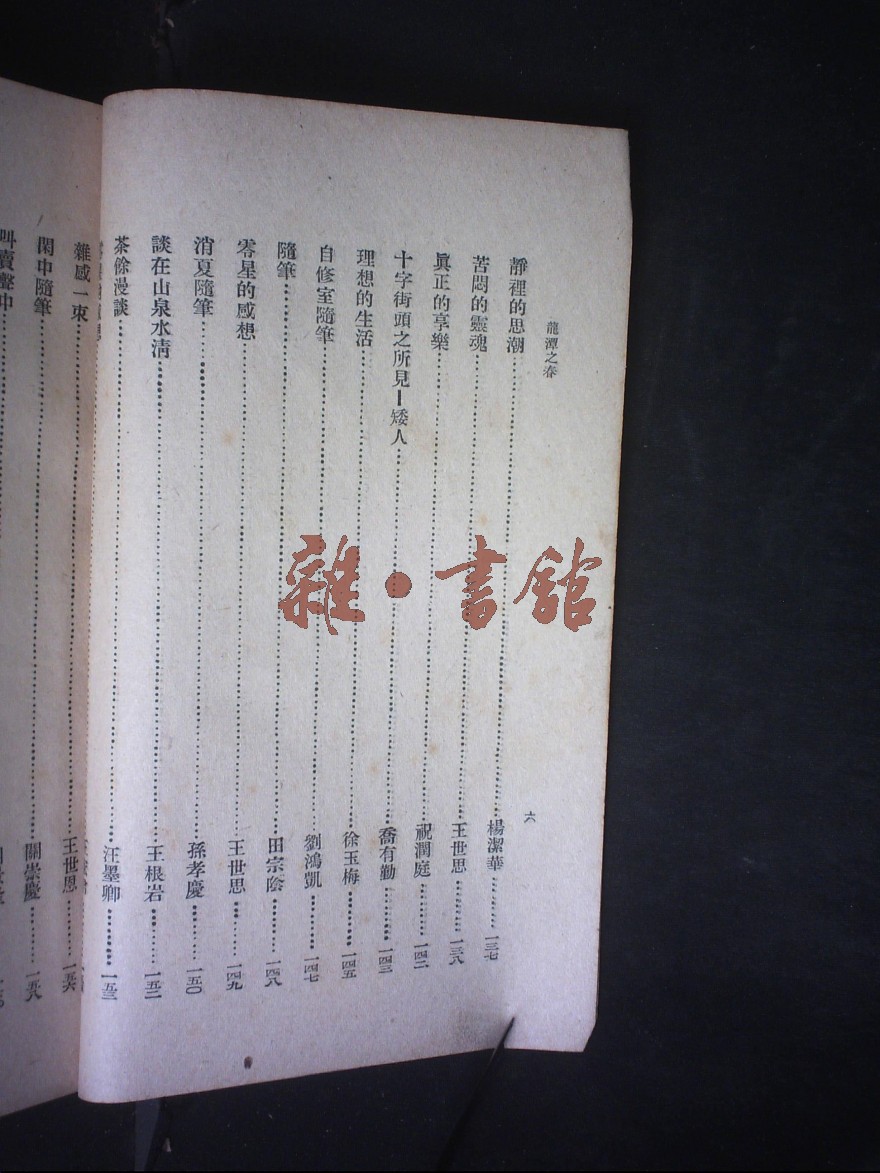 龍潭之春
六
靜裡的思潮……楊潔華……一三七
苦悶的靈魂……王世思……一三八
眞正的享樂……祝潤庭……一四二
十字街頭之所見—矮人……喬有勤……一四三
理想的生活……徐玉梅……一四五
自修室隨筆……劉鴻凱……一四七
隨筆……田宗陰……一四八
零星的感想……王世思……一四九
消夏隨筆……孫孝慶……一五〇
談在山泉水清……王根岩……一五二
茶餘漫談……汪墨卿……一五三
雜感一束……王世恩……一五六
閑中隨筆……關崇慶……一五八
叫賣聲中
雜·書館